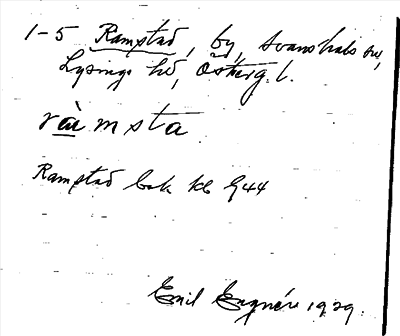 1-5 Ramstad, by, Svanshals sn,
Lysings hd, Österg. l.
ràmsta
Ramstad bok kb 944
Emil Engnér 1929.